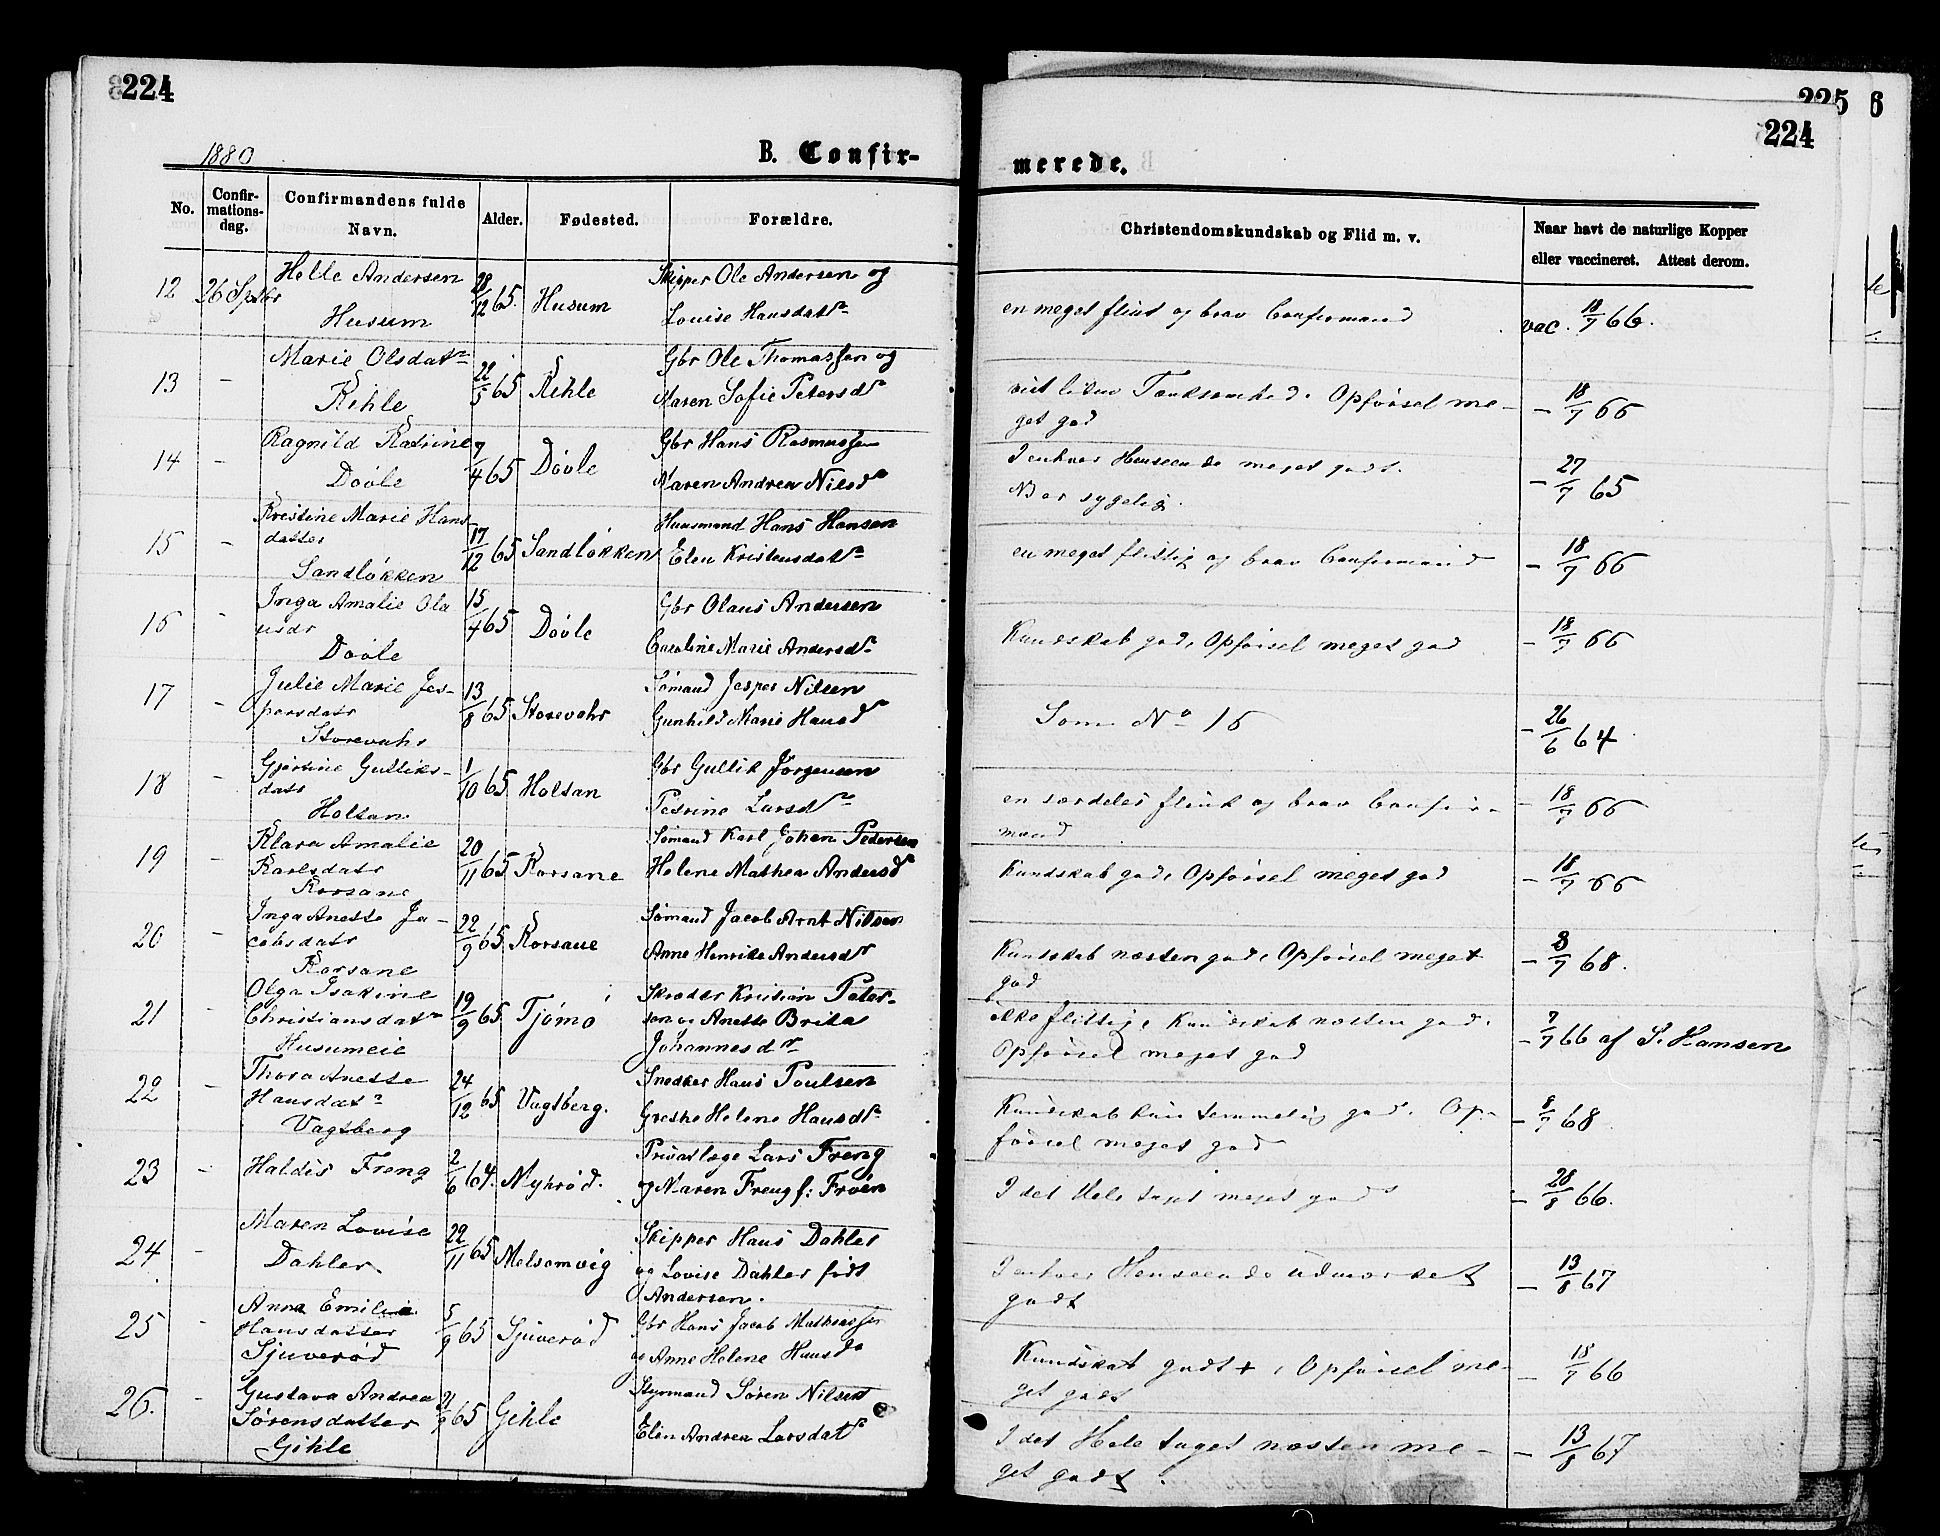 224
225 6
224
1880
B. Confir-
merede.
No.
Confir-
mations-
dag.
Confirmandens fulde
Navn.
Alder.
Fødested.
Forældre.
Christendomskundskab og Flid m. v.
Naar havt de naturlige Kopper
eller vaccineret. Attest derom.
12 26 Sptbr Helle Andersen
Husum
28/12 65. Husum
Skipper Ole Andersen og
Louise Hansdatr
en meget flink og brav Confirmand
vac. 18/7 66.
13 - Marie Olsdatr
Kihle
22/5 65 Kihle
Gbr Ole Thomassen og
Maren Sofie Petersdr
Opførsel me-
get god
- 18/7 66
14 - Ragnild Katrine
Døvle
7/4 65 Døvle
Gbr Hans Rasmussen
Maren Andrea Nilsdr
I enhver Henseende meget godt.
NB er sygelig.
- 27/7 65
15 - Kristine Marie Hans
datter
Sandløkken
17/12 65 Sandløkken
Huusmand Hans Hansen
Elen Kristensdatr
en meget flittig og brav Confirmand
- 18/7 66
16 - Inga Amalie Ola
usdr
Døvle
15/4 65 Døvle
Gbr Olaus Andersen
Caroline Marie Andersdr
Kundskab god, Opførsel meget god
- 18/7 66
17 - Julie Marie Jes-
persdatr
Storevahr
13/8 65 Storevahr
Sømand Jesper Nilsen
Gunhild Marie Hansdr
Som No 16
- 26/6 64
18 - Gjertine Gulliks-
datr
Holtan
1/10 65 Holtan
Gbr Gullik Jørgensen
Petrine Larsdr
en særdeles flink og brav Confir-
mand
- 18/7 66
19 - Klara Amalie
Karlsdatr
Rorsane
20/11 65 Rorsane
Sømand Karl Johan Pedersen
Helene Mathea Andersdr
Kundskab god, Opførsel meget god
- 18/7 66
20 - Inga Anette Ja-
cobsdatr
Rorsane
22/9 65 Rorsane
Sømand Jacob Arnt Nilsen
Anne Henrike Andersdr
Kundskab næsten god, Opførsel meget
god
- 8/7 68.
21 - Olga Isakine
Christiansdatr
Husumeie
19/9 65 Tjømø
Skræder Kristian Peter-
sen og Anette Brita
Johannesdr
ikke flittig, Kundskab næsten god.
Opførsel meget god
- 7/7 66 af S. Hansen
22 - Thora Anette
Hansdatr
Vagsberg
24/12 65 Vagsberg.
Snedker Hans Poulsen
Grethe Helene Hansdr
Kundskab kun temmelig god. Op-
førsel meget god
- 8/7 68
23 - Haldis Freng
2/6 64. Nykrød.
Privatlæge Lars Freng
og Maren Freng f: Frøen
I det Hele taget meget godt
- 20/8 66.
24 - Maren Lovise
Dahler
22/11 65 Melsomvig
Skipper Hans Dahler
og Lovise Dahler født
Andersen.
I enhver Henseende udmærket
godt
- 13/8 67
25 - Anna Emilie
Hansdatter
Sjuverød
5/9 65 Sjuverød
Gbr Hans Jacob Mathiassen
og Anne Helene Hansdr
Kundskab godt +, Opførsel me-
get godt
- 18/7 66
26. - Gustava Andrea
Sørensdatter
Gihle
21/9 65 Gihle
Styrmand Søren Nilsen
Elen Andrea Larsdatr
I det Hele taget næsten me-
get godt.
- 13/8 67